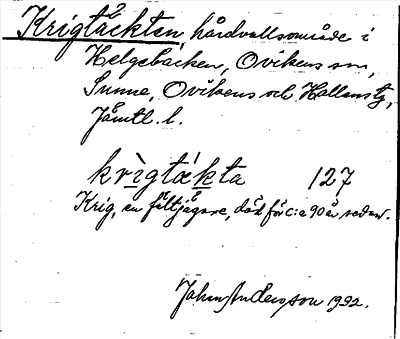 Krigtäckten, hårdvallsområde i
Helgebacken, Ovikens sn,
Sunne, Ovikens och Hallens tg,
Jämtl. l.
krìgtækta 127
Krig, en fältjägare, död för c:a 90 år sedan.
John Andersson 1932.